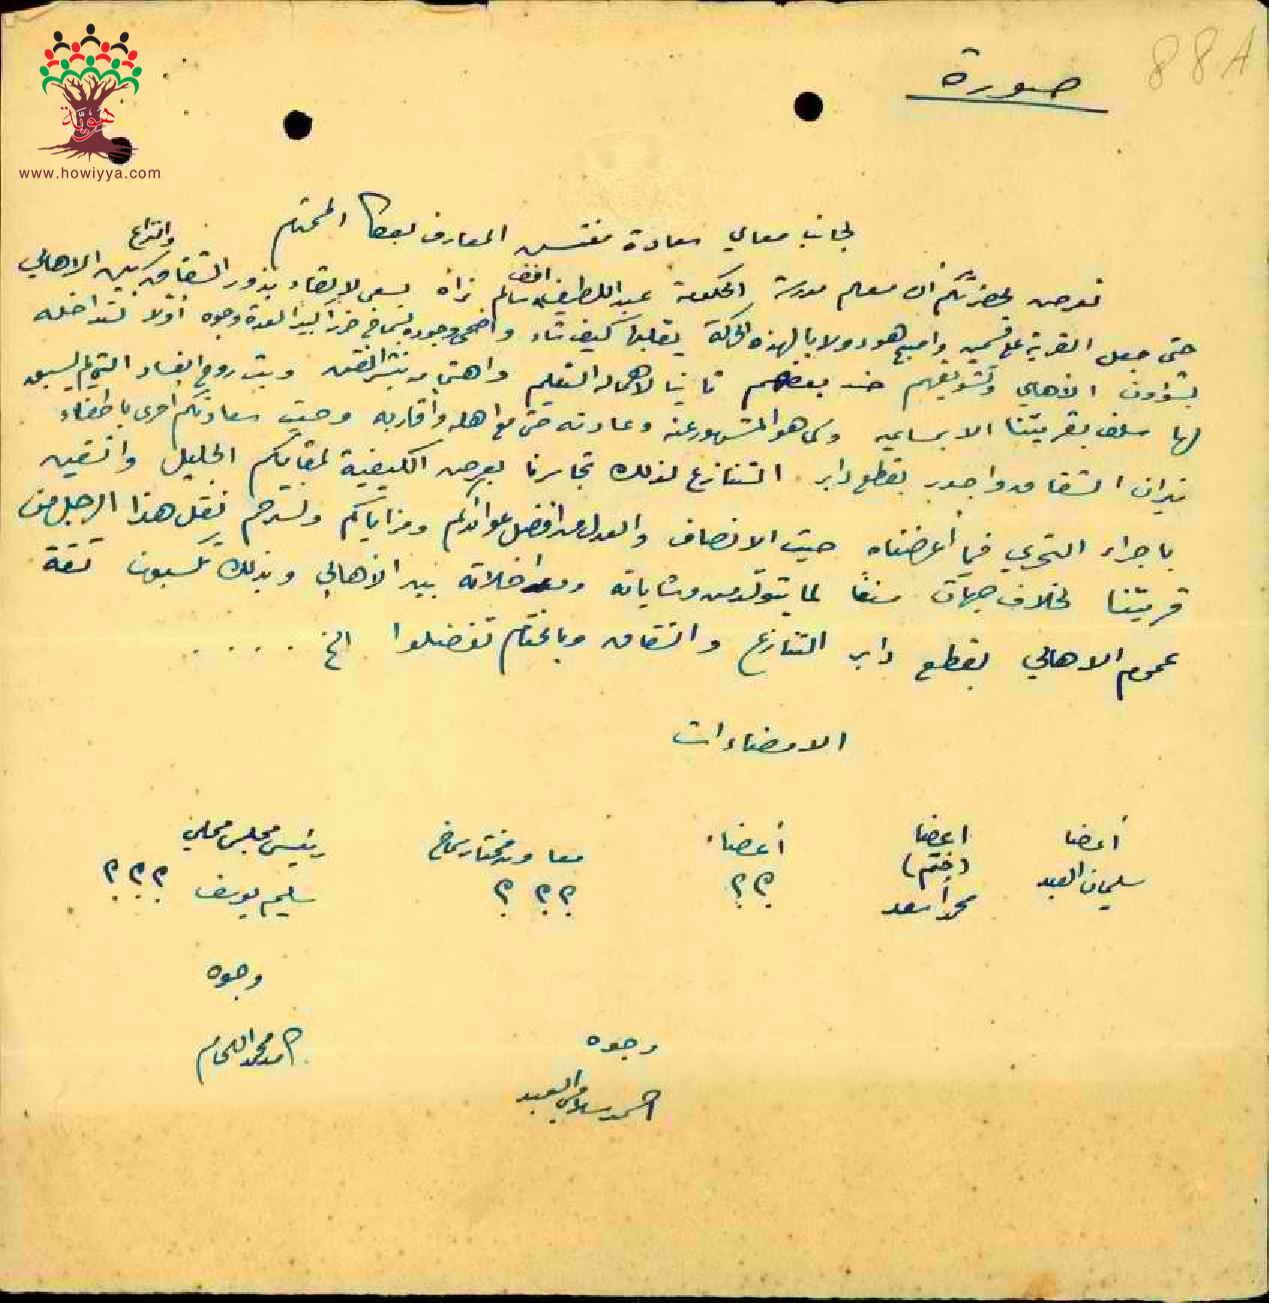 88A
صورة
هوية
www.howiyya.com
لجانب معالي سعادة مفتش المعارف بعكا المحترم
نعرض لحضرتكم ان معلم مدرسة الحكومة عبد اللطيف افندي سالم نراه يسعى لإلقاء بذور الشقاق واقتراع بين الاهالي
حتى جعل القرية على قسمين واصبح هو دولابا لهذه الحركة يقلبها كيف شاء واضحى وجوده بسماخ ضررا لعدة وجوه أولا لتداخله
بشؤون الأهالي وتشويقهم ضد بعضهم ثانيا لاهماله التعليم واهتمامه بنشر الفتن وبث روح الفساد التي لم يسبق
لها سلف بقريتنا الا بمساعيه وكما هو المشهور عنه وعادته حتى مع اهله وأقاربه وحيث سعادتكم احرى باطفاء
نيران الشقاق واجدر بقطع دابر التنازع لذلك تجاسرنا بعرض الكيفية لمقامكم الجليل واثقين
باجراء التحري فيما أعرضناه حيث الانصاف والعدل من افضل عوائدكم ومزاياكم ونسترحم نقل هذا الرجل من
قريتنا لخلاف جهات منعًا لما يتولد من وشاياته ومداخلاته بين الأهالي وبذلك تكسبون ثقة
عموم الاهالي بقطع دابر التنازع والشقاق وبالختام تفضلوا الخ . . . .
الامضاءات
أعضا
سليمان العبد
اعضا
(ختم)
محمد أسعد
أعضا
؟ ؟
معاون مختار سماخ
؟ ؟ ؟
رئيس مجلس محلي
سليم يوسف ؟ ؟ ؟
وجوه
حامد محمد اللحام
وجوه
احمد العبد